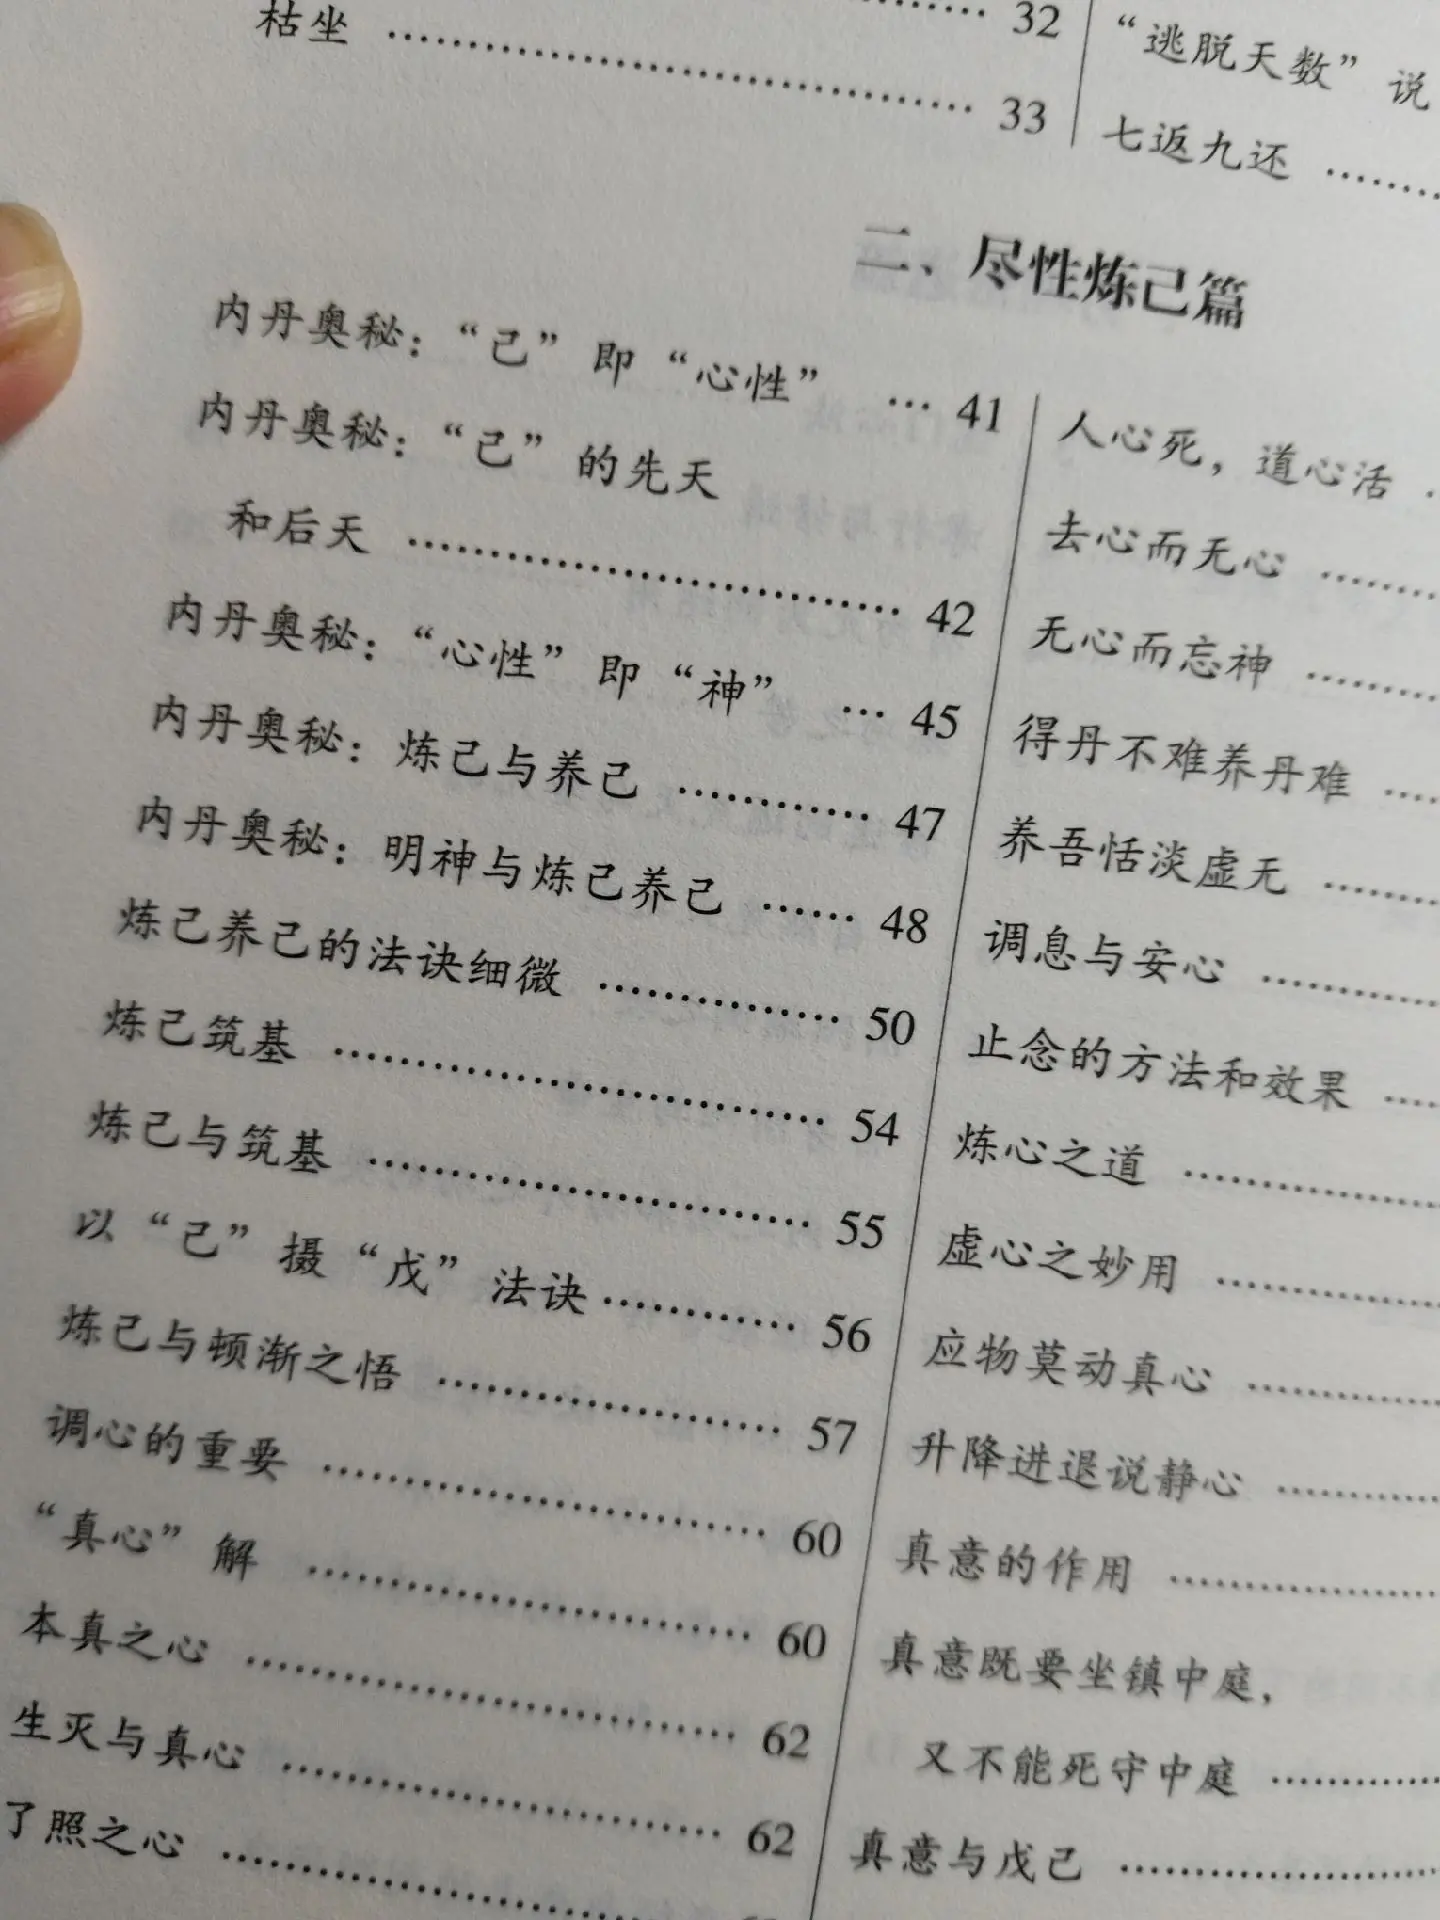 ………… 32
枯坐 ………… 33
“逃脱天数”说
七返九还 …………
二、尽性炼己篇
内丹奥秘：“己”即“心性” … 41
内丹奥秘：“己”的先天
和后天 ………… 42
内丹奥秘：“心性”即“神” … 45
内丹奥秘：炼己与养己 ………… 47
内丹奥秘：明神与炼己养己 …… 48
炼己养己的法诀细微 ………… 50
炼己筑基 ………… 54
炼己与筑基 ………… 55
以“己”摄“戊”法诀 ………… 56
炼己与顿渐之悟 ………… 57
调心的重要 ………… 60
“真心”解 ………… 60
本真之心 ………… 62
生灭与真心 ………… 62
了照之心 …………
人心死，道心活 …
去心而无心 …………
无心而忘神 …………
得丹不难养丹难 …………
养吾恬淡虚无 …………
调息与安心 …………
止念的方法和效果 …………
炼心之道 …………
虚心之妙用 …………
应物莫动真心 …………
升降进退说静心 …………
真意的作用 …………
真意既要坐镇中庭，
又不能死守中庭 …………
真意与戊己 …………